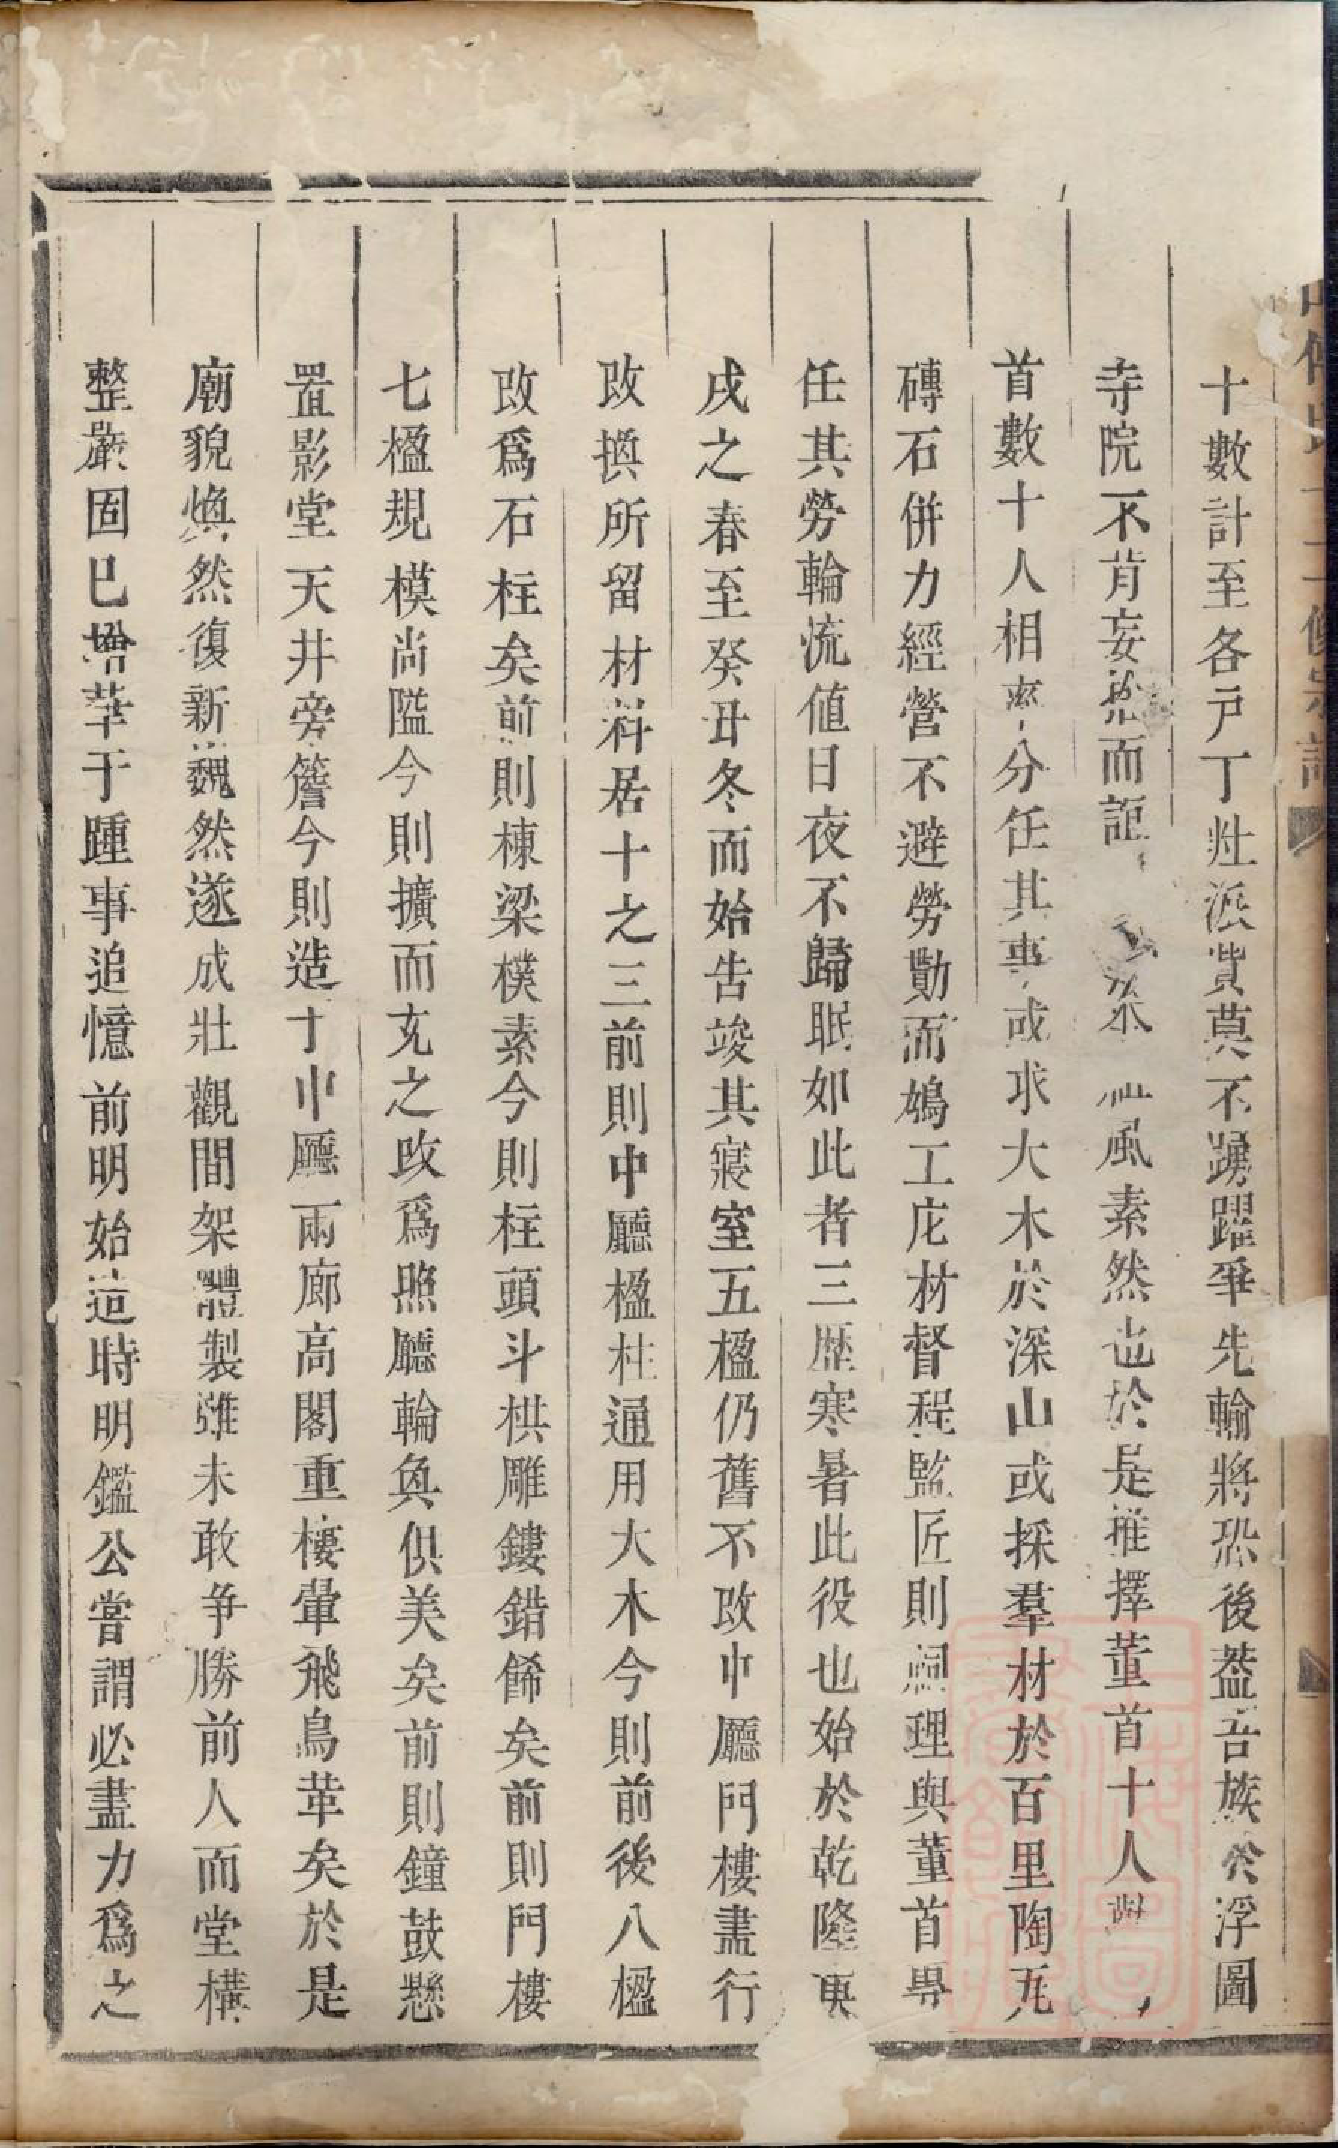 十數計至各戸丁灶派費莫不踴躍爭先輸將恐後葢吾族於浮圖
寺院不肯妄洍而証 風素然也於是推擇董首十人
首數十人相率分任其事或求大木於深山或採羣材於百里陶瓦
磚石併力經營不避勞勩而鳩工庀材督程監匠則祠理與董首專
任其勞輪流値日夜不歸眠如此者三歴寒暑此役也始於乾隆庚
戌之春至癸丑冬而始告竣其寢室五楹仍舊不改中廳門樓盡行
改換所留材料居十之三前則中廳楹柱通用大木今則前後八楹
改爲石柱矣前則棟梁樸素今則柱頭斗栱雕鏤錯餙矣前則門樓
七楹規模尚隘今則擴而充之改爲照廳輪奐俱美矣前則鐘鼓懸
置影堂天井旁簷今則造于中廳兩廊高閣重樓翬飛鳥革矣於是
廟貌煥然復新巍然遂成壯觀間架體製雖未敢争勝前人而堂構
整嚴固已增華于踵事追憶前明始造時明鑑公嘗謂必盡力爲之